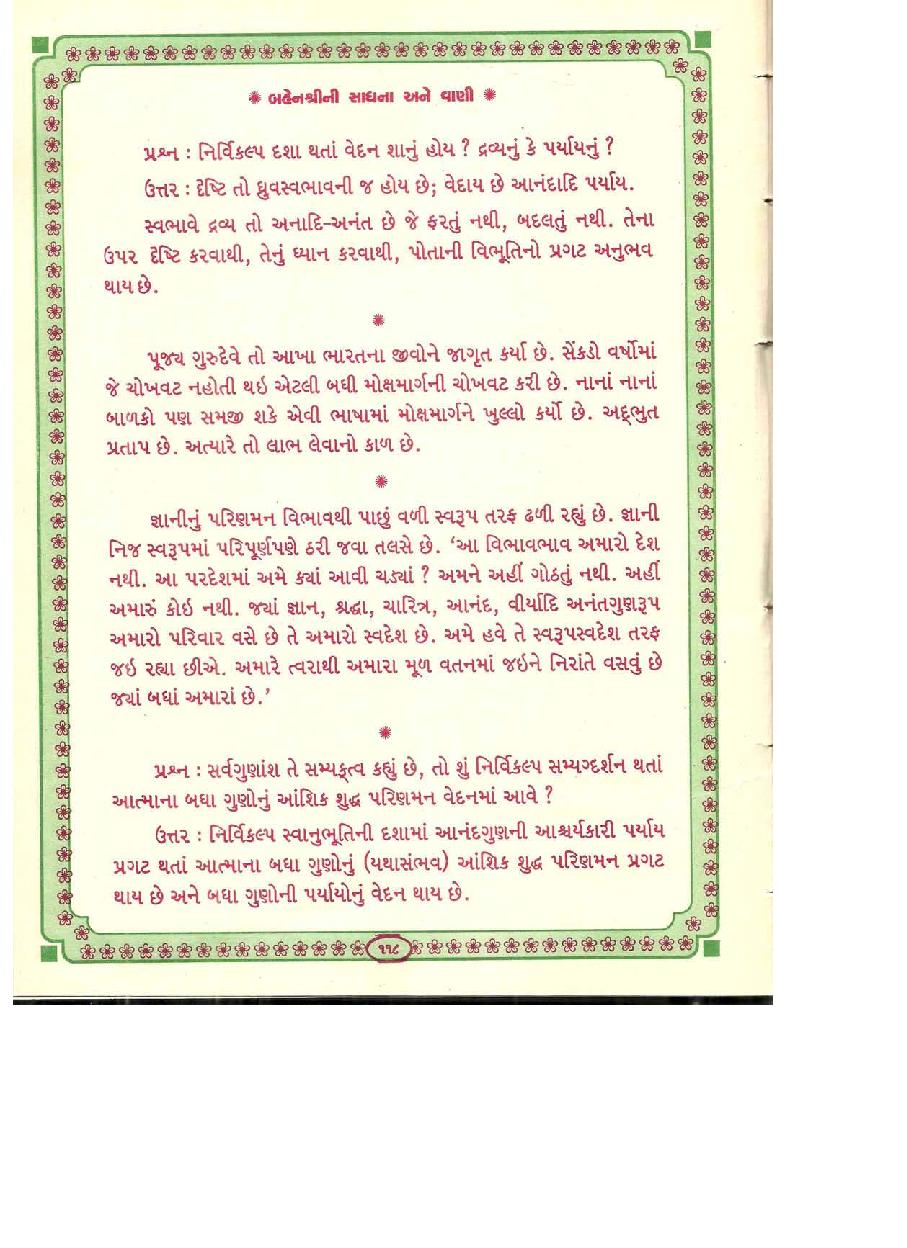 ✺ બહેનશ્રીની સાધના અને વાણી ✺
પ્રશ્ન : નિર્વિકલ્પ દશા થતાં વેદન શાનું હોય ? દ્રવ્યનું કે પર્યાયનું ?
ઉત્તર : દૃષ્ટિ તો ધ્રુવસ્વભાવની જ હોય છે; વેદાય છે આનંદાદિ પર્યાય.
સ્વભાવે દ્રવ્ય તો અનાદિ-અનંત છે જે ફરતું નથી, બદલતું નથી. તેના
ઉપર દૃષ્ટિ કરવાથી, તેનું ધ્યાન કરવાથી, પોતાની વિભૂતિનો પ્રગટ અનુભવ
થાય છે.
✺
પૂજ્ય ગુરુદેવે તો આખા ભારતના જીવોને જાગૃત કર્યા છે. સેંકડો વર્ષોમાં
જે ચોખવટ નહોતી થઇ એટલી બધી મોક્ષમાર્ગની ચોખવટ કરી છે. નાનાં નાનાં
બાળકો પણ સમજી શકે એવી ભાષામાં મોક્ષમાર્ગને ખુલ્લો કર્યો છે. અદ્ભુત
પ્રતાપ છે. અત્યારે તો લાભ લેવાનો કાળ છે.
✺
જ્ઞાનીનું પરિણમન વિભાવથી પાછું વળી સ્વરૂપ તરફ ઢળી રહ્યું છે. જ્ઞાની
નિજ સ્વરૂપમાં પરિપૂર્ણપણે ઠરી જવા તલસે છે. ‘આ વિભાવભાવ અમારો દેશ
નથી. આ પરદેશમાં અમે ક્યાં આવી ચડ્યાં ? અમને અહીં ગોઠતું નથી. અહીં
અમારું કોઇ નથી. જ્યાં જ્ઞાન, શ્રદ્ધા, ચારિત્ર, આનંદ, વીર્યાદિ અનંતગુણરૂપ
અમારો પરિવાર વસે છે તે અમારો સ્વદેશ છે. અમે હવે તે સ્વરૂપસ્વદેશ તરફ
જઇ રહ્યા છીએ. અમારે ત્વરાથી અમારા મૂળ વતનમાં જઇને નિરાંતે વસવું છે
જ્યાં બધાં અમારાં છે.’
✺
પ્રશ્ન : સર્વગુણાંશ તે સમ્યક્ત્વ કહ્યું છે, તો શું નિર્વિકલ્પ સમ્યગ્દર્શન થતાં
આત્માના બધા ગુણોનું આંશિક શુદ્ધ પરિણમન વેદનમાં આવે ?
ઉત્તર : નિર્વિકલ્પ સ્વાનુભૂતિની દશામાં આનંદગુણની આશ્ચર્યકારી પર્યાય
પ્રગટ થતાં આત્માના બધા ગુણોનું (યથાસંભવ) આંશિક શુદ્ધ પરિણમન પ્રગટ
થાય છે અને બધા ગુણોની પર્યાયોનું વેદન થાય છે.
૧૧૮